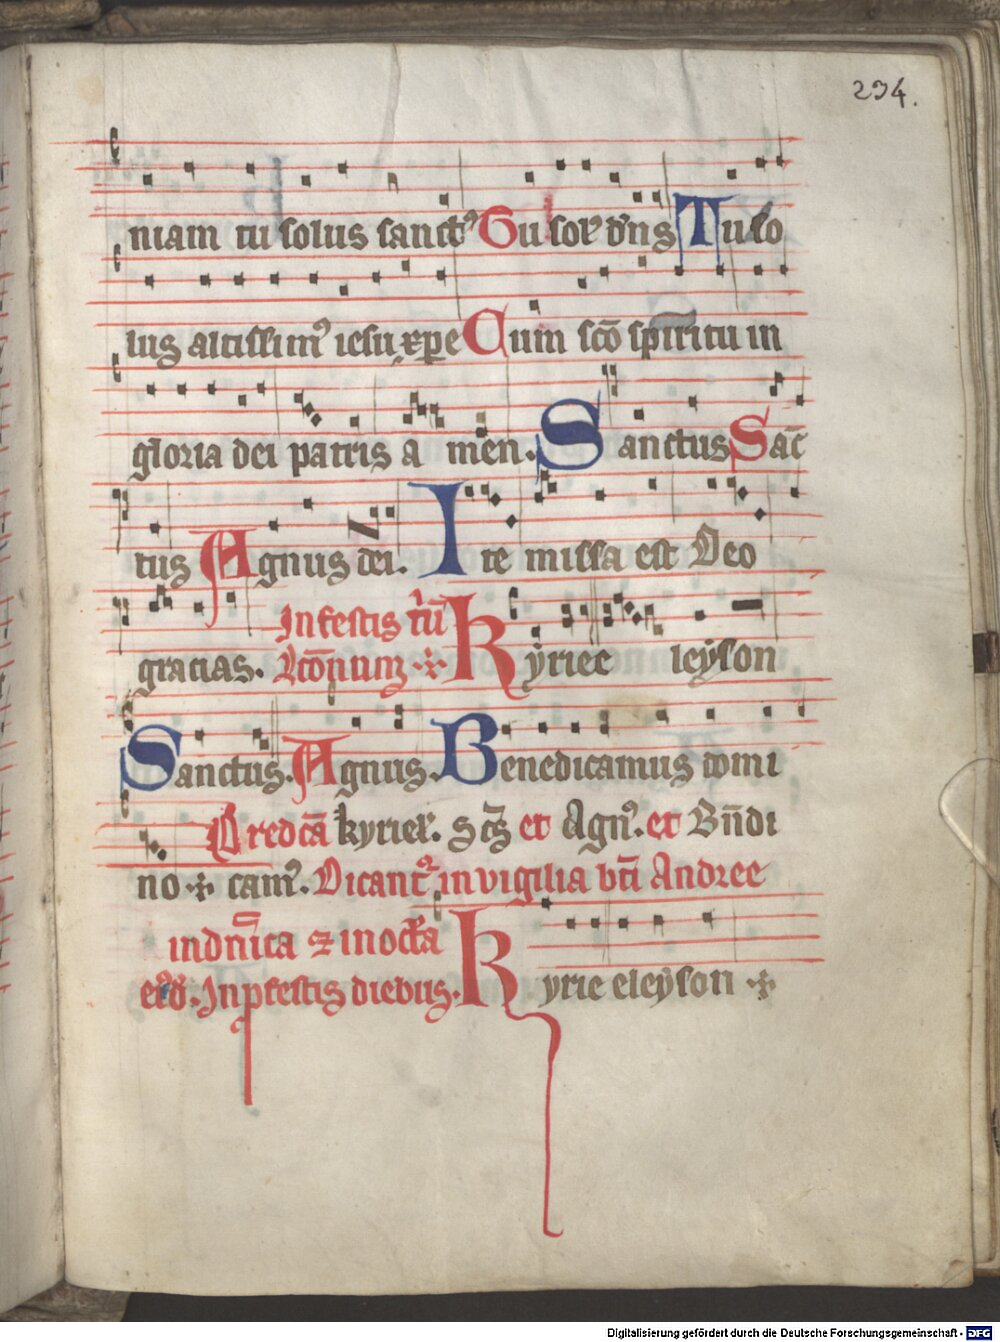 234.
niam tu solus sanctꝰ Tu solꝰ dn̄s Tu so
lus altissimꝰ iesu xp̄e Cum sc̄o spiritu in
gloria dei patris a men. Sanctus Sāc
tus Agnus dei. Ite missa est Deo
In festis triū
gracias. lc̄onum kyriee leyson
Sanctus. Agnus. Benedicamus domi
Predc̄a kyriel'. Sc̄s et Agn'. et Bn̄di
no cam'. Dicantᷣ in vigilia bt̄i Andree
in dn̄ica ⁊ in oct̄a
In pfestis diebus. kyrie eleyson
Digitalisierung gefördert durch die Deutsche Forschungsgemeinschaft - DFG